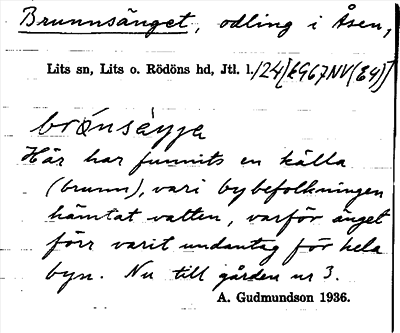 Brunnsänget, odling i Åsen,
Lits sn, Lits o. Rödöns hd, Jtl. l./124[£G67NV(E4)]
brǿnsàŋɲa
Här har funnits en källa
(brunn), vari bybefolkningen
hämtat vatten, varför änget
förr varit undantag för hela
byn. Nu till gården nr 3.
A. Gudmundson 1936.